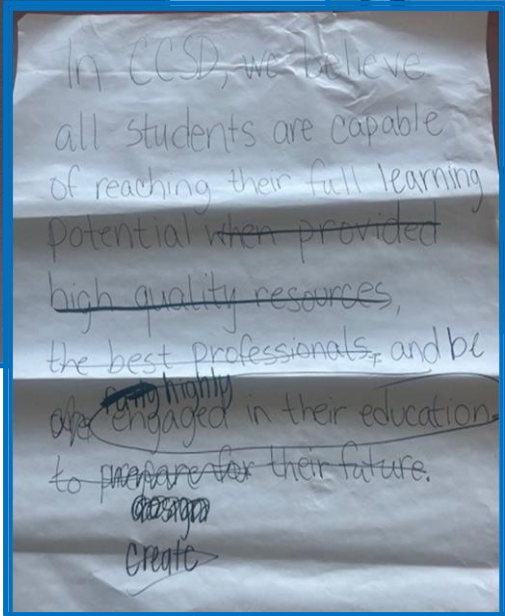 In CCSD, we believe
all students are capable
of reaching their full learning
potential when provided
high quality resources,
the best professionals, and be
fully highly
are engaged in their education
to prepare for their future.
design
create